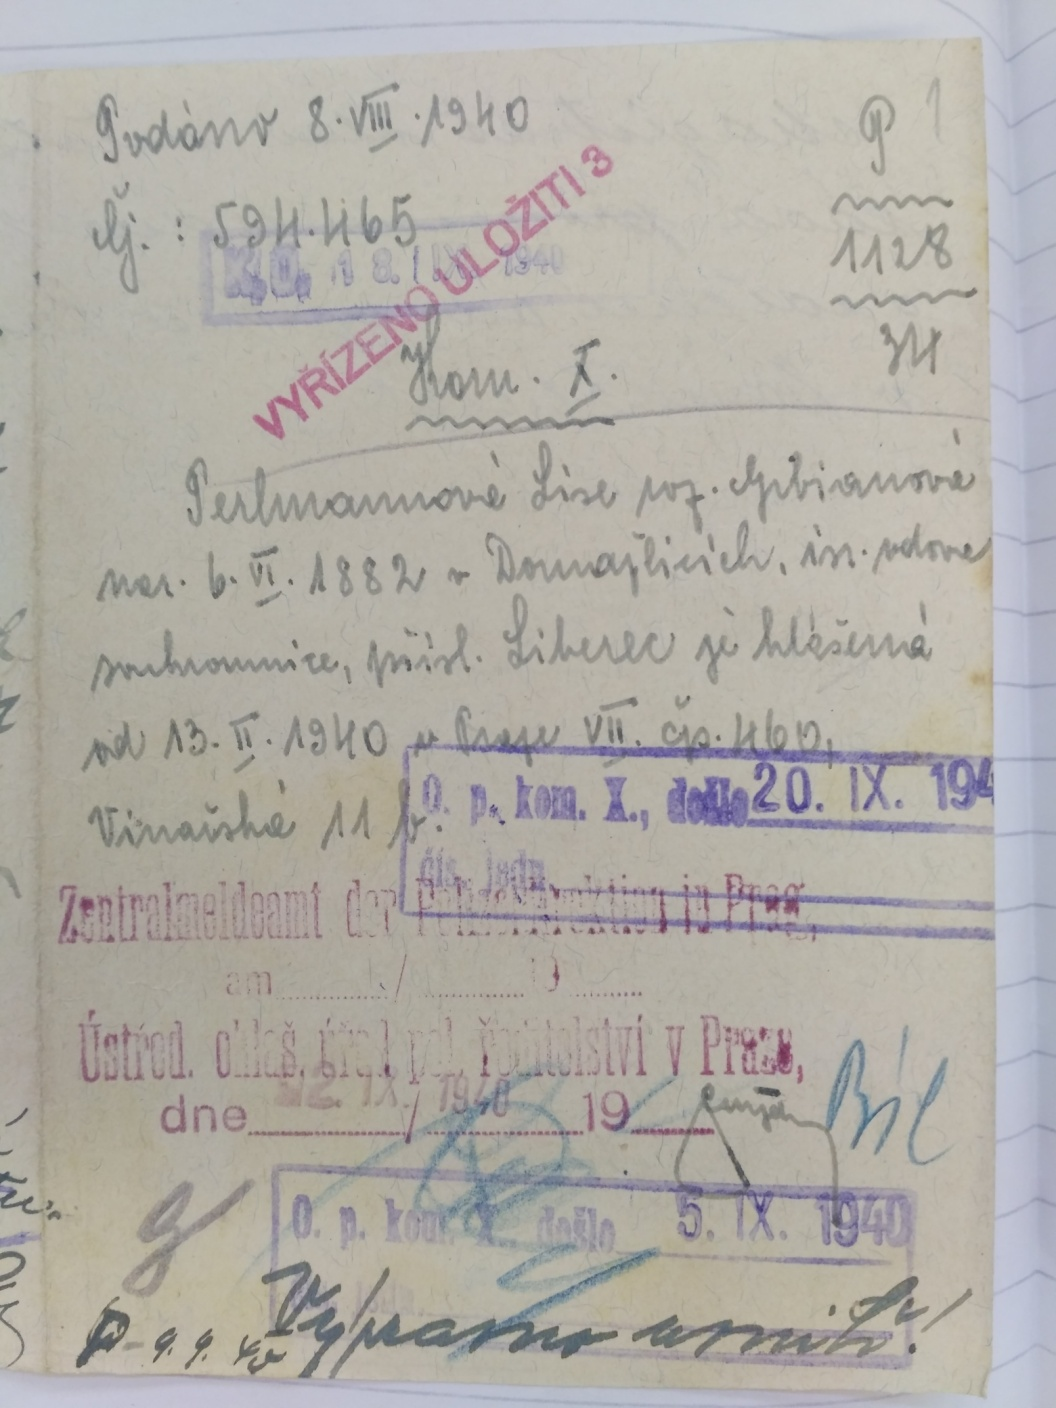 Podáno 8.VIII.1940
P 1
čj.: 594.465
1128
K.O. 18. IX. 1940
VYŘÍZENO ULOŽITI 3
34
Kom. X.
Perlmannová Lise roz.
nar. 6.VI.1882 v Domažlicích, isr. vdova
soukromnice, přísl. Liberec je hlášena
od 13.II.1940 v Praze VII. čp. 460,
Vinařská 11
O. p. kom. X., došlo 20. IX. 194
čís. jedn.
Zentralmeldeamt der Polizeidirektion in Prag,
am / 19
Ústřed. ohlaš. úřad pol. ředitelství v Praze,
dne / 19
IX. 1940
O. p. kom. X. došlo 5. IX. 1940
9.9.40